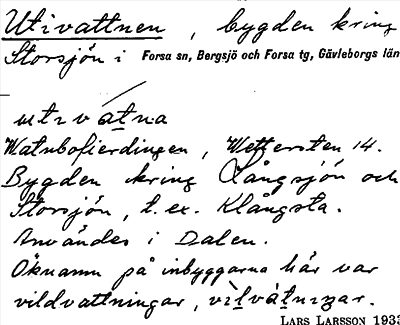 Utivattnen, bygden kring
Storsjön i Forsa sn, Bergsjö och Forsa tg, Gävleborgs län
utıvátna
Watnbofierdingen, Wettersten 14.
Bygden kring Långsjön och
Storsjön, t. ex. Klångsta.
Användes i Dalen.
Öknamn på inbyggarna här var
vildvattningar, vìlvàtnıŋar.
LARS LARSSON 1933